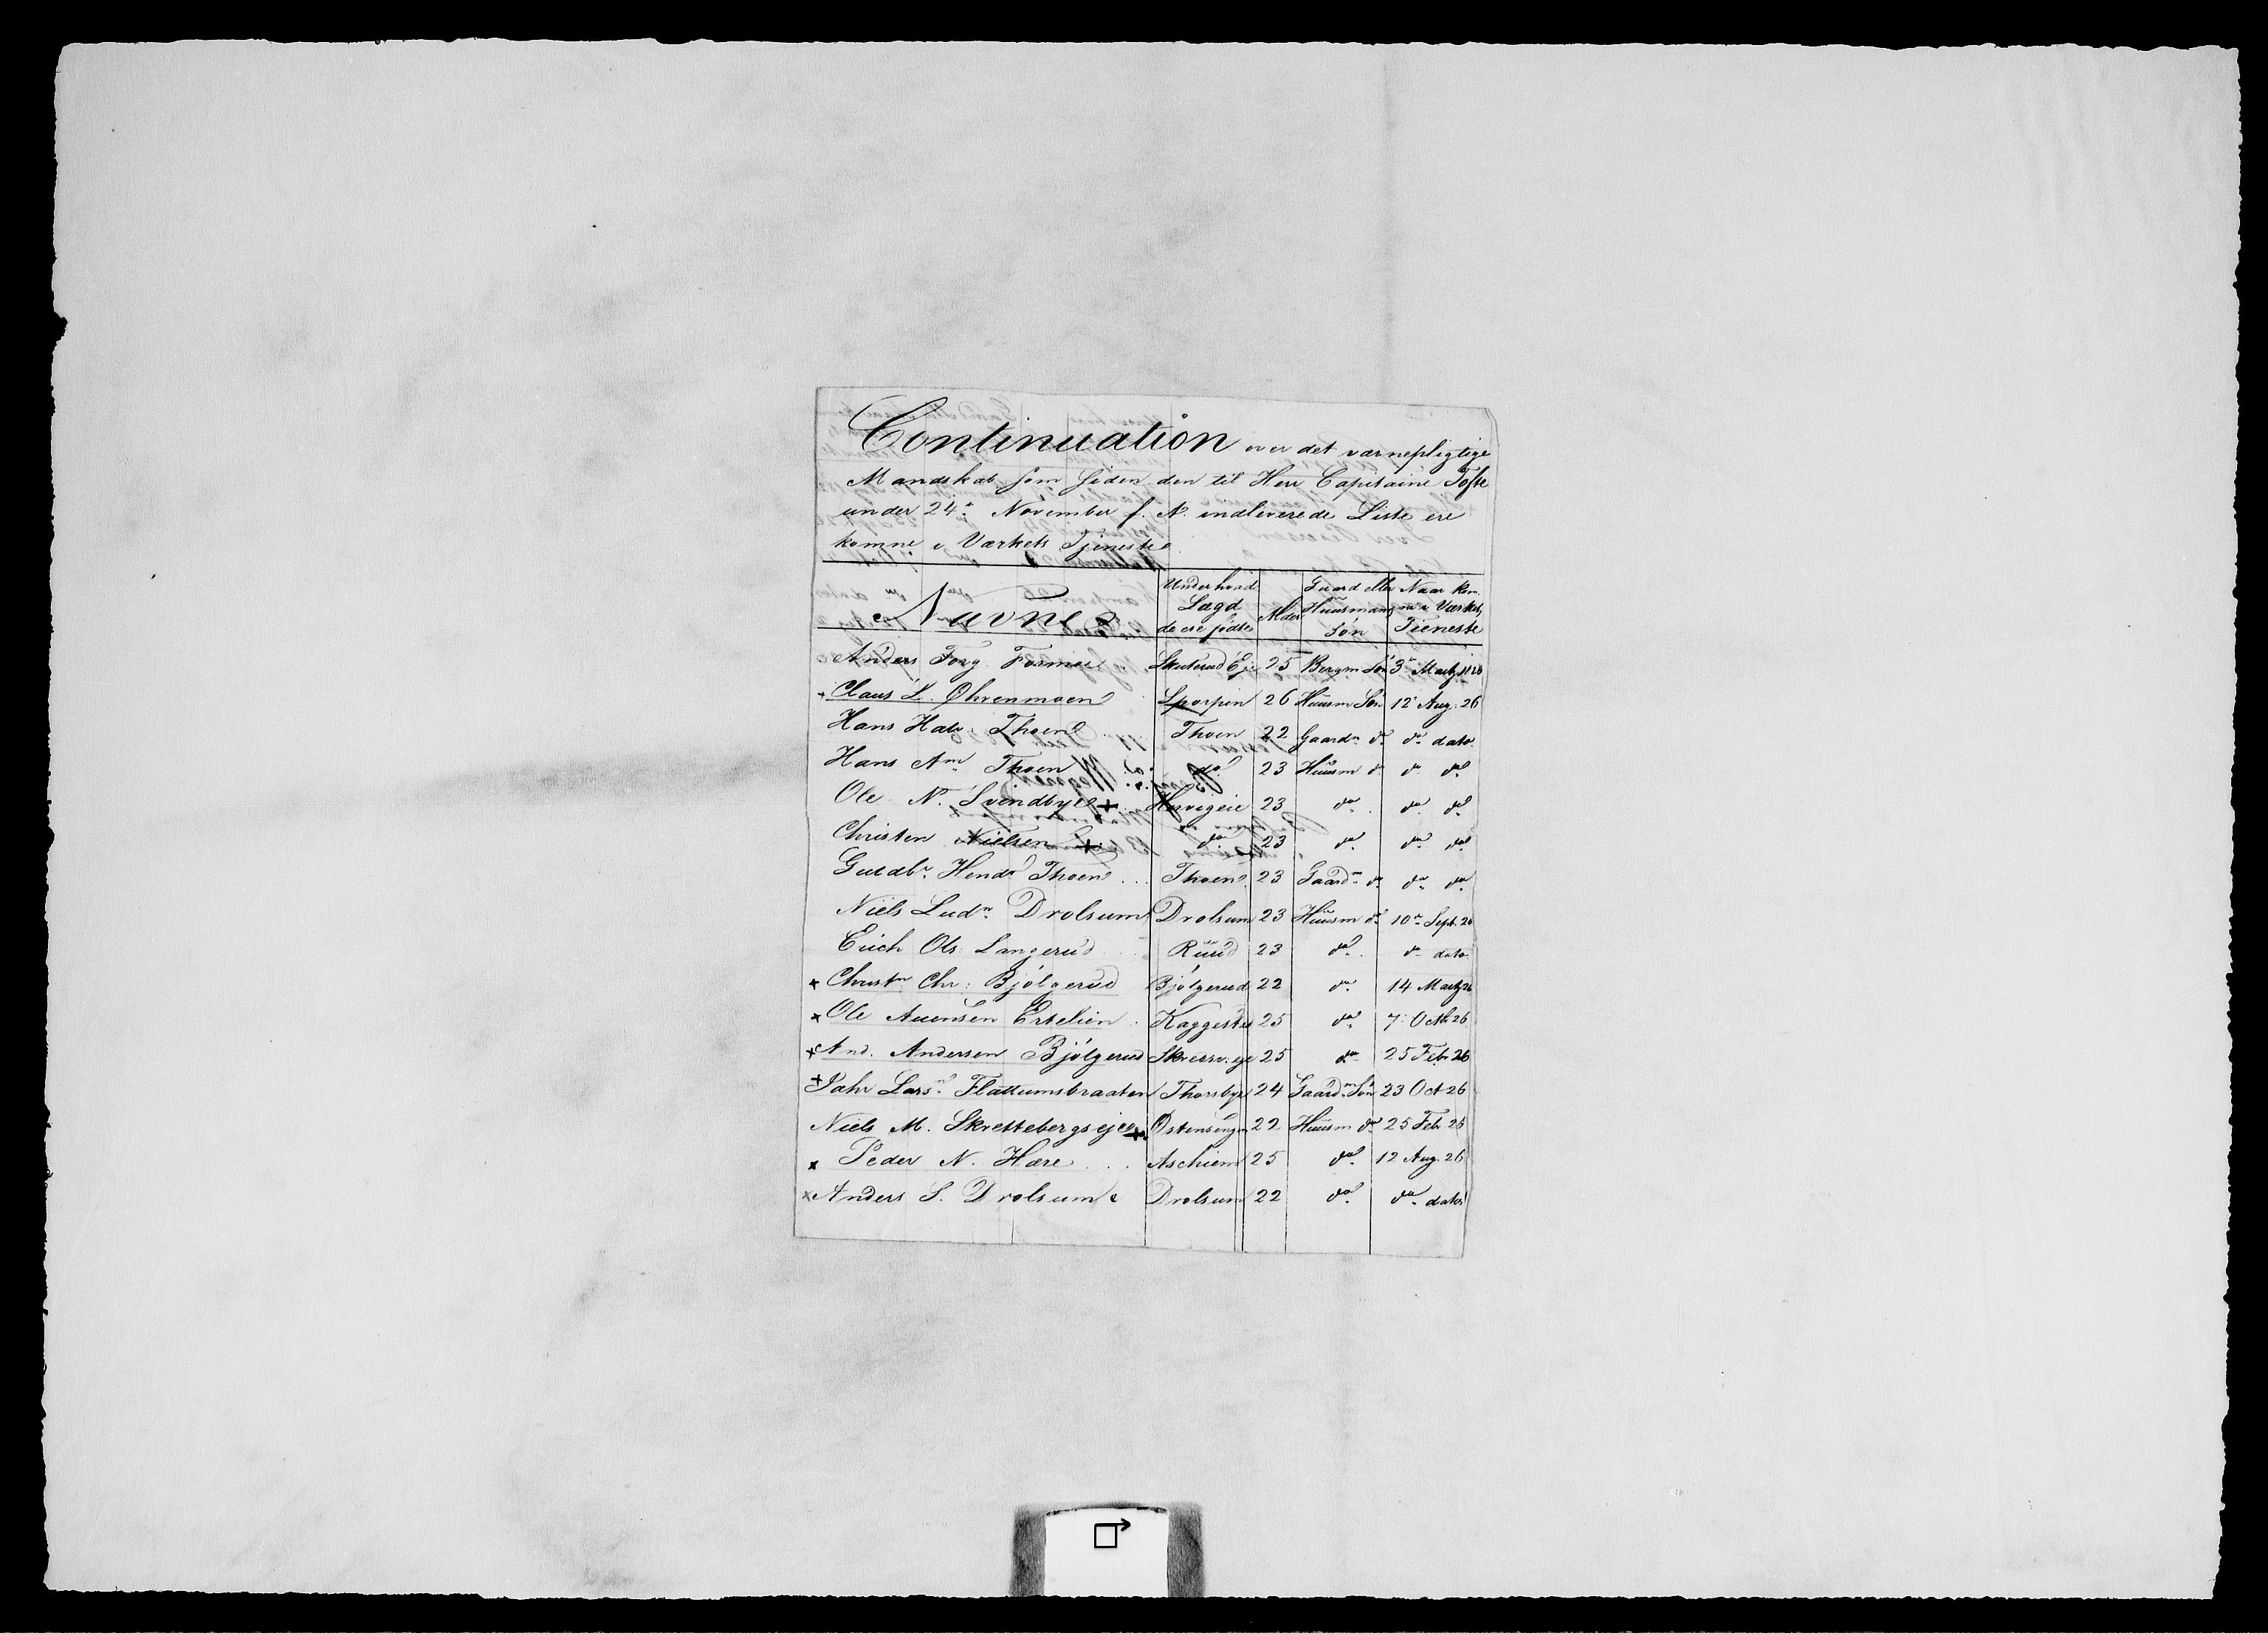 Continuation over det værnepligtige
Mandskab som siden den til Herr Capitaine Tofte
under 24de November f. A. indleverede Liste ere
komne i Værkets Tjeneste
Navne Under hvad Lægd de ere fødte Alder Gaard eller Huusmans Søn Naar komne i Værkets Tieneste
Anders Forg. Formoe Skuterud Eje 25 Bergm Søn 3de Martz 1826
+ Claus L. Øhrenmoen 26 Huusm Søn 12 Aug. 26
Hans Halv. Thoen Thoen 22 Gaardm do do dato
Hans Am Thoen do 23 Huusm do do do
Ole N. Svindbye + 23 do do do
Christen Nielsen + do 23 do do do
Guldbr. Hends Thoen Thoen 23 Gaardm do do do
Niels Ludn. Drolsum Drolsum 23 Huusm do 10de Sept. 26
Erich Ols. Langerud Ruud 23 do do dato
+ Christn Chr: Bjølgerud Bjølgerud 22 do 14 Martz 26
+ Ole Auensen Ertelien Kaggestad 25 do 7 Octb 26
+ And. Andersen Bjølgerud 25 do 25 Feb 26
+ Lars. Flattumsbraaten Thorsbye 24 Gaardm Søn 23 Oct 26
Niels M. Skrettebergsejee + Østensengen 22 Huusm do 25 Feb 26
+ Peder N. Hære Aschiem 25 do 12 Aug. 26
+ Anders S. Drolsum Drolsum 22 do do dato